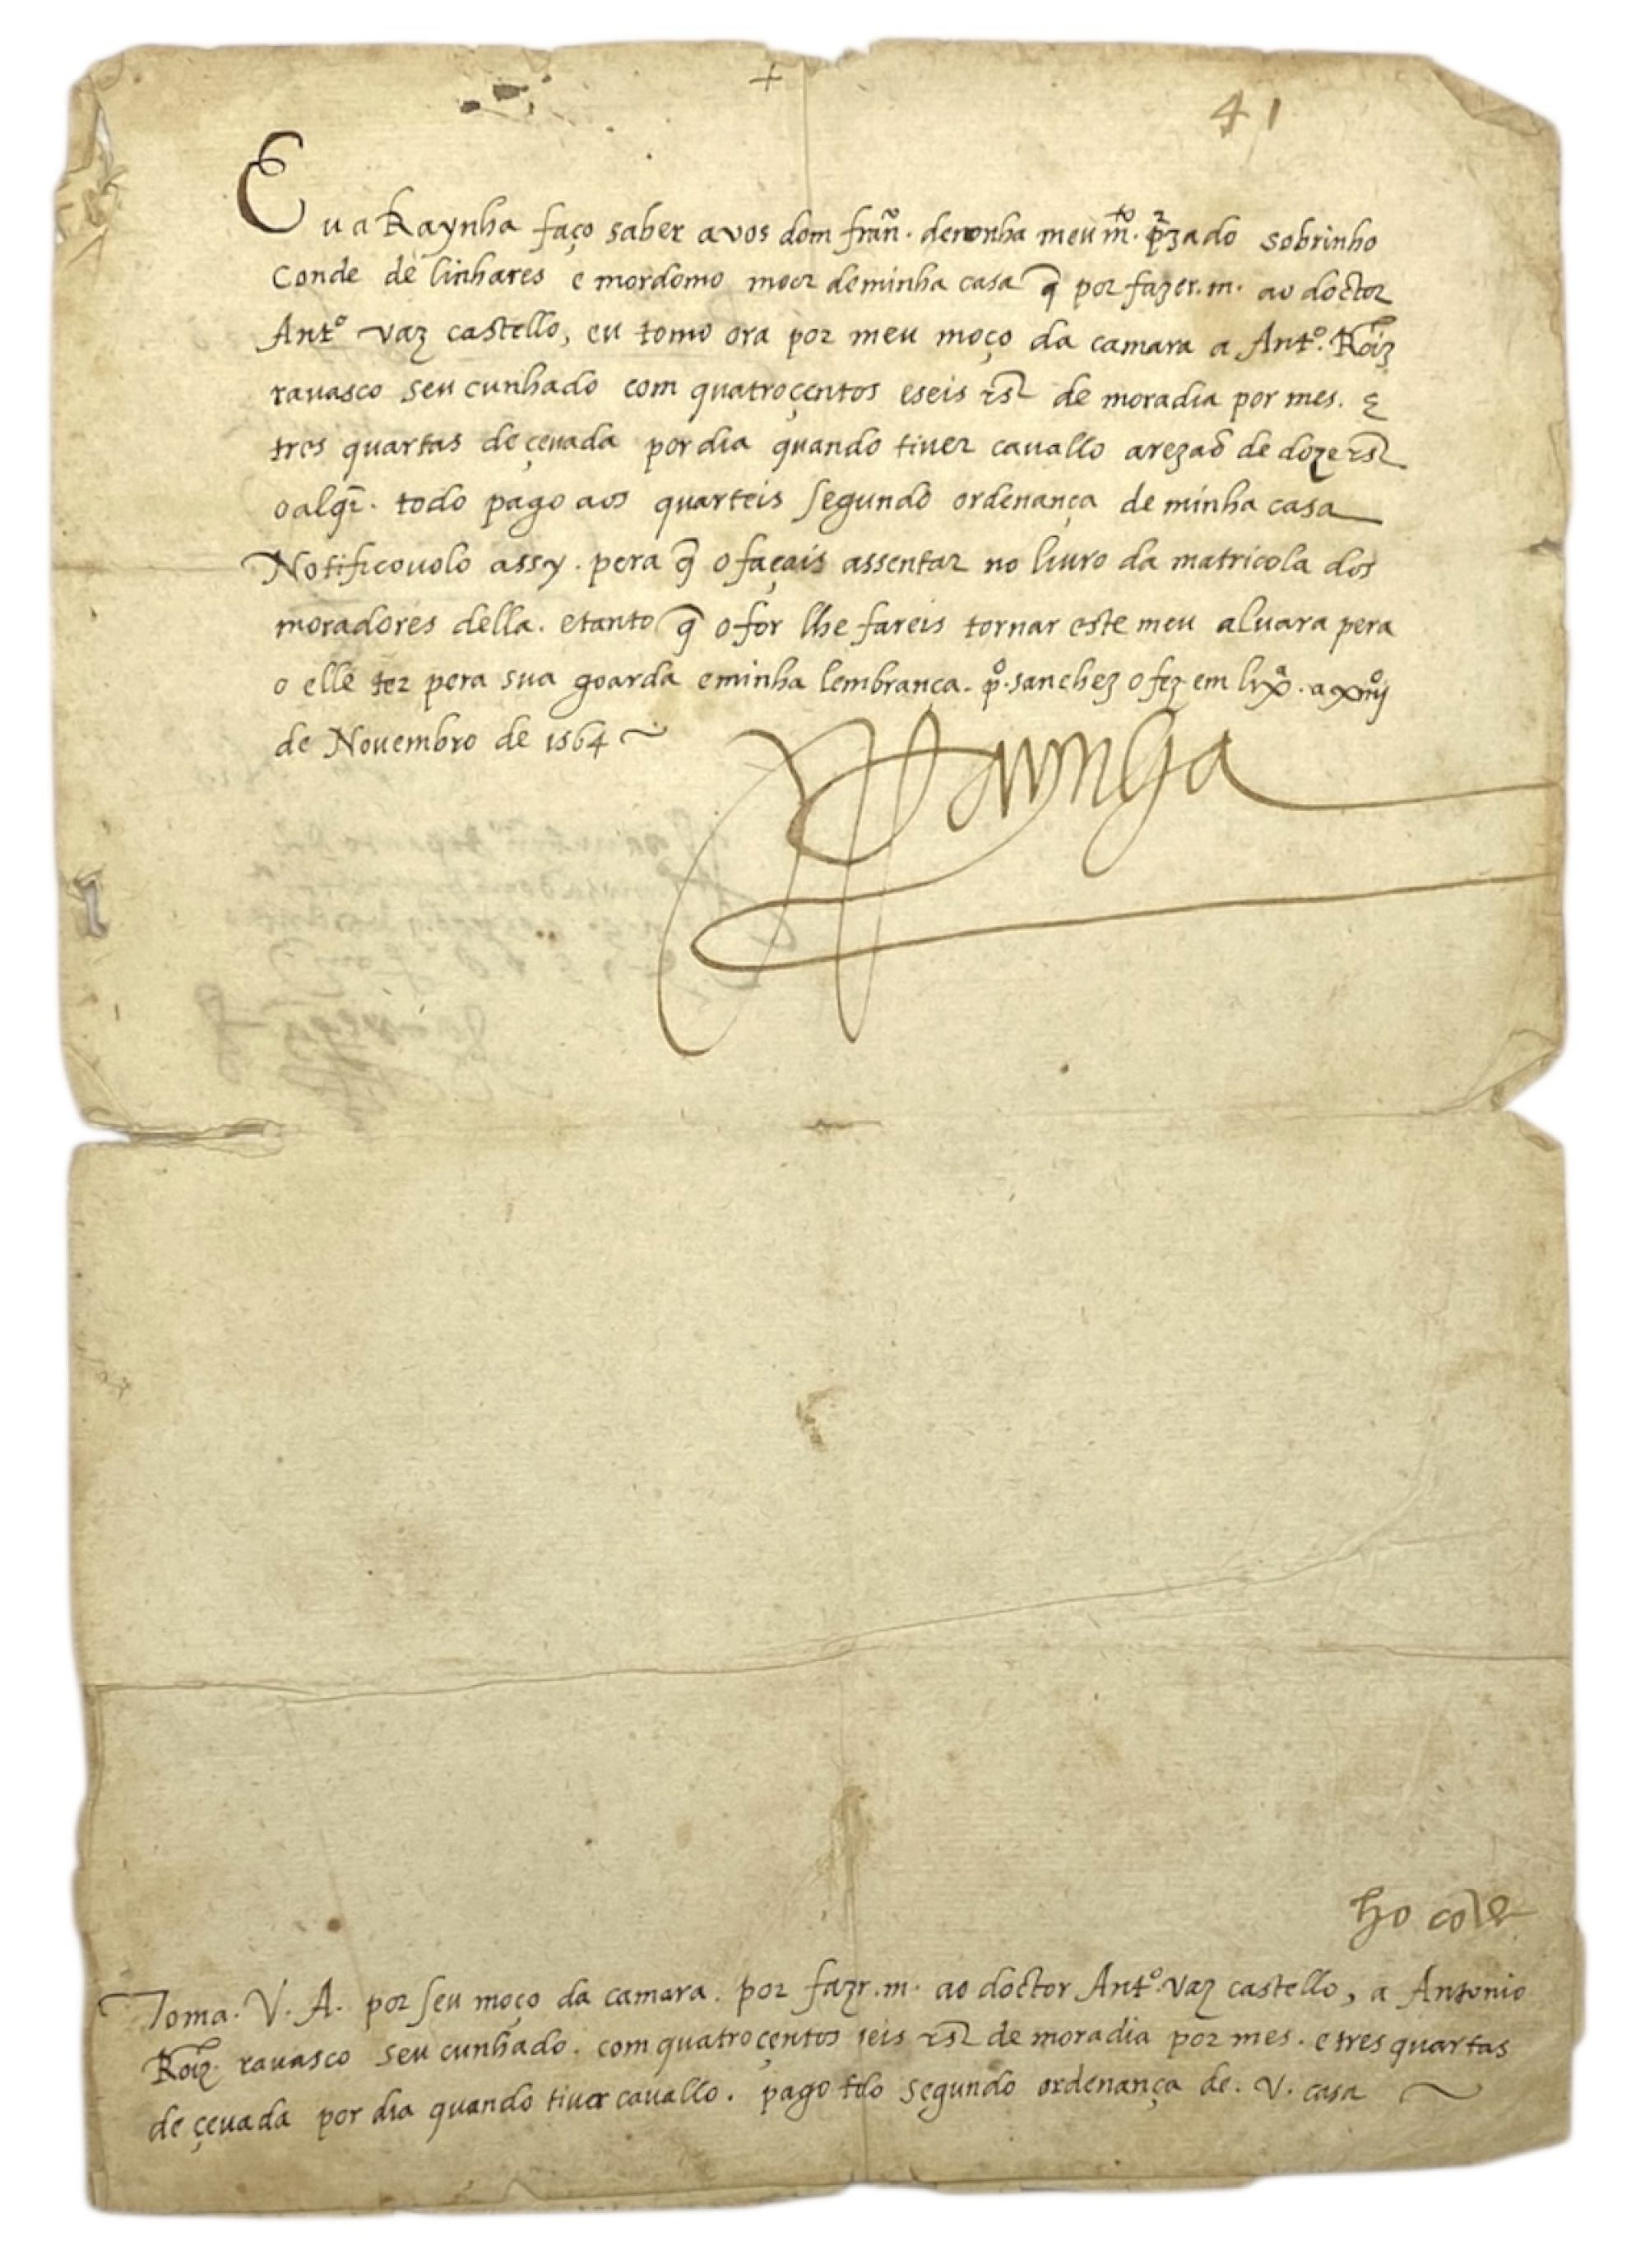 +
41
Eu a Raynha faço saber a vos dom fran.º de noronha meu m.to p.zado sobrinho
Conde de linhares e mordomo moor de minha casa q̃ por fazer .m. ao doctor
Ant.º vaz castello, eu tomo ora por meu moço da camara a Ant.º Roiz
rauasco seu cunhado com quatroçentos e seis rs de moradia por mes. E
tres quartas de çeuada por dia quando tiuer cauallo a rezaõ de doze rs
o alqr̃. todo pago aos quarteis segundo ordenança de minha casa
Notificouolo assy. pera q̃ o façais assentar no liuro da matricola dos
moradores della. e tanto q̃ o for lhe fareis tornar este meu aluara pera
o elle ter pera sua goarda e minha lembrança. p.º sanchez o fez em lix.ª a
de Nouembro de 1564 ~
Raynha
ho cõde
Toma. V. A. por seu moço da camara. por fazr .m. ao doctor Ant.º vaz castello, a Antonio
Roiz. rauasco seu cunhado. com quatroçentos seis rs de moradia por mes. e tres quartas
de çeuada por dia quando tiuer cauallo. pago tdo segundo ordenança de. V. casa ~